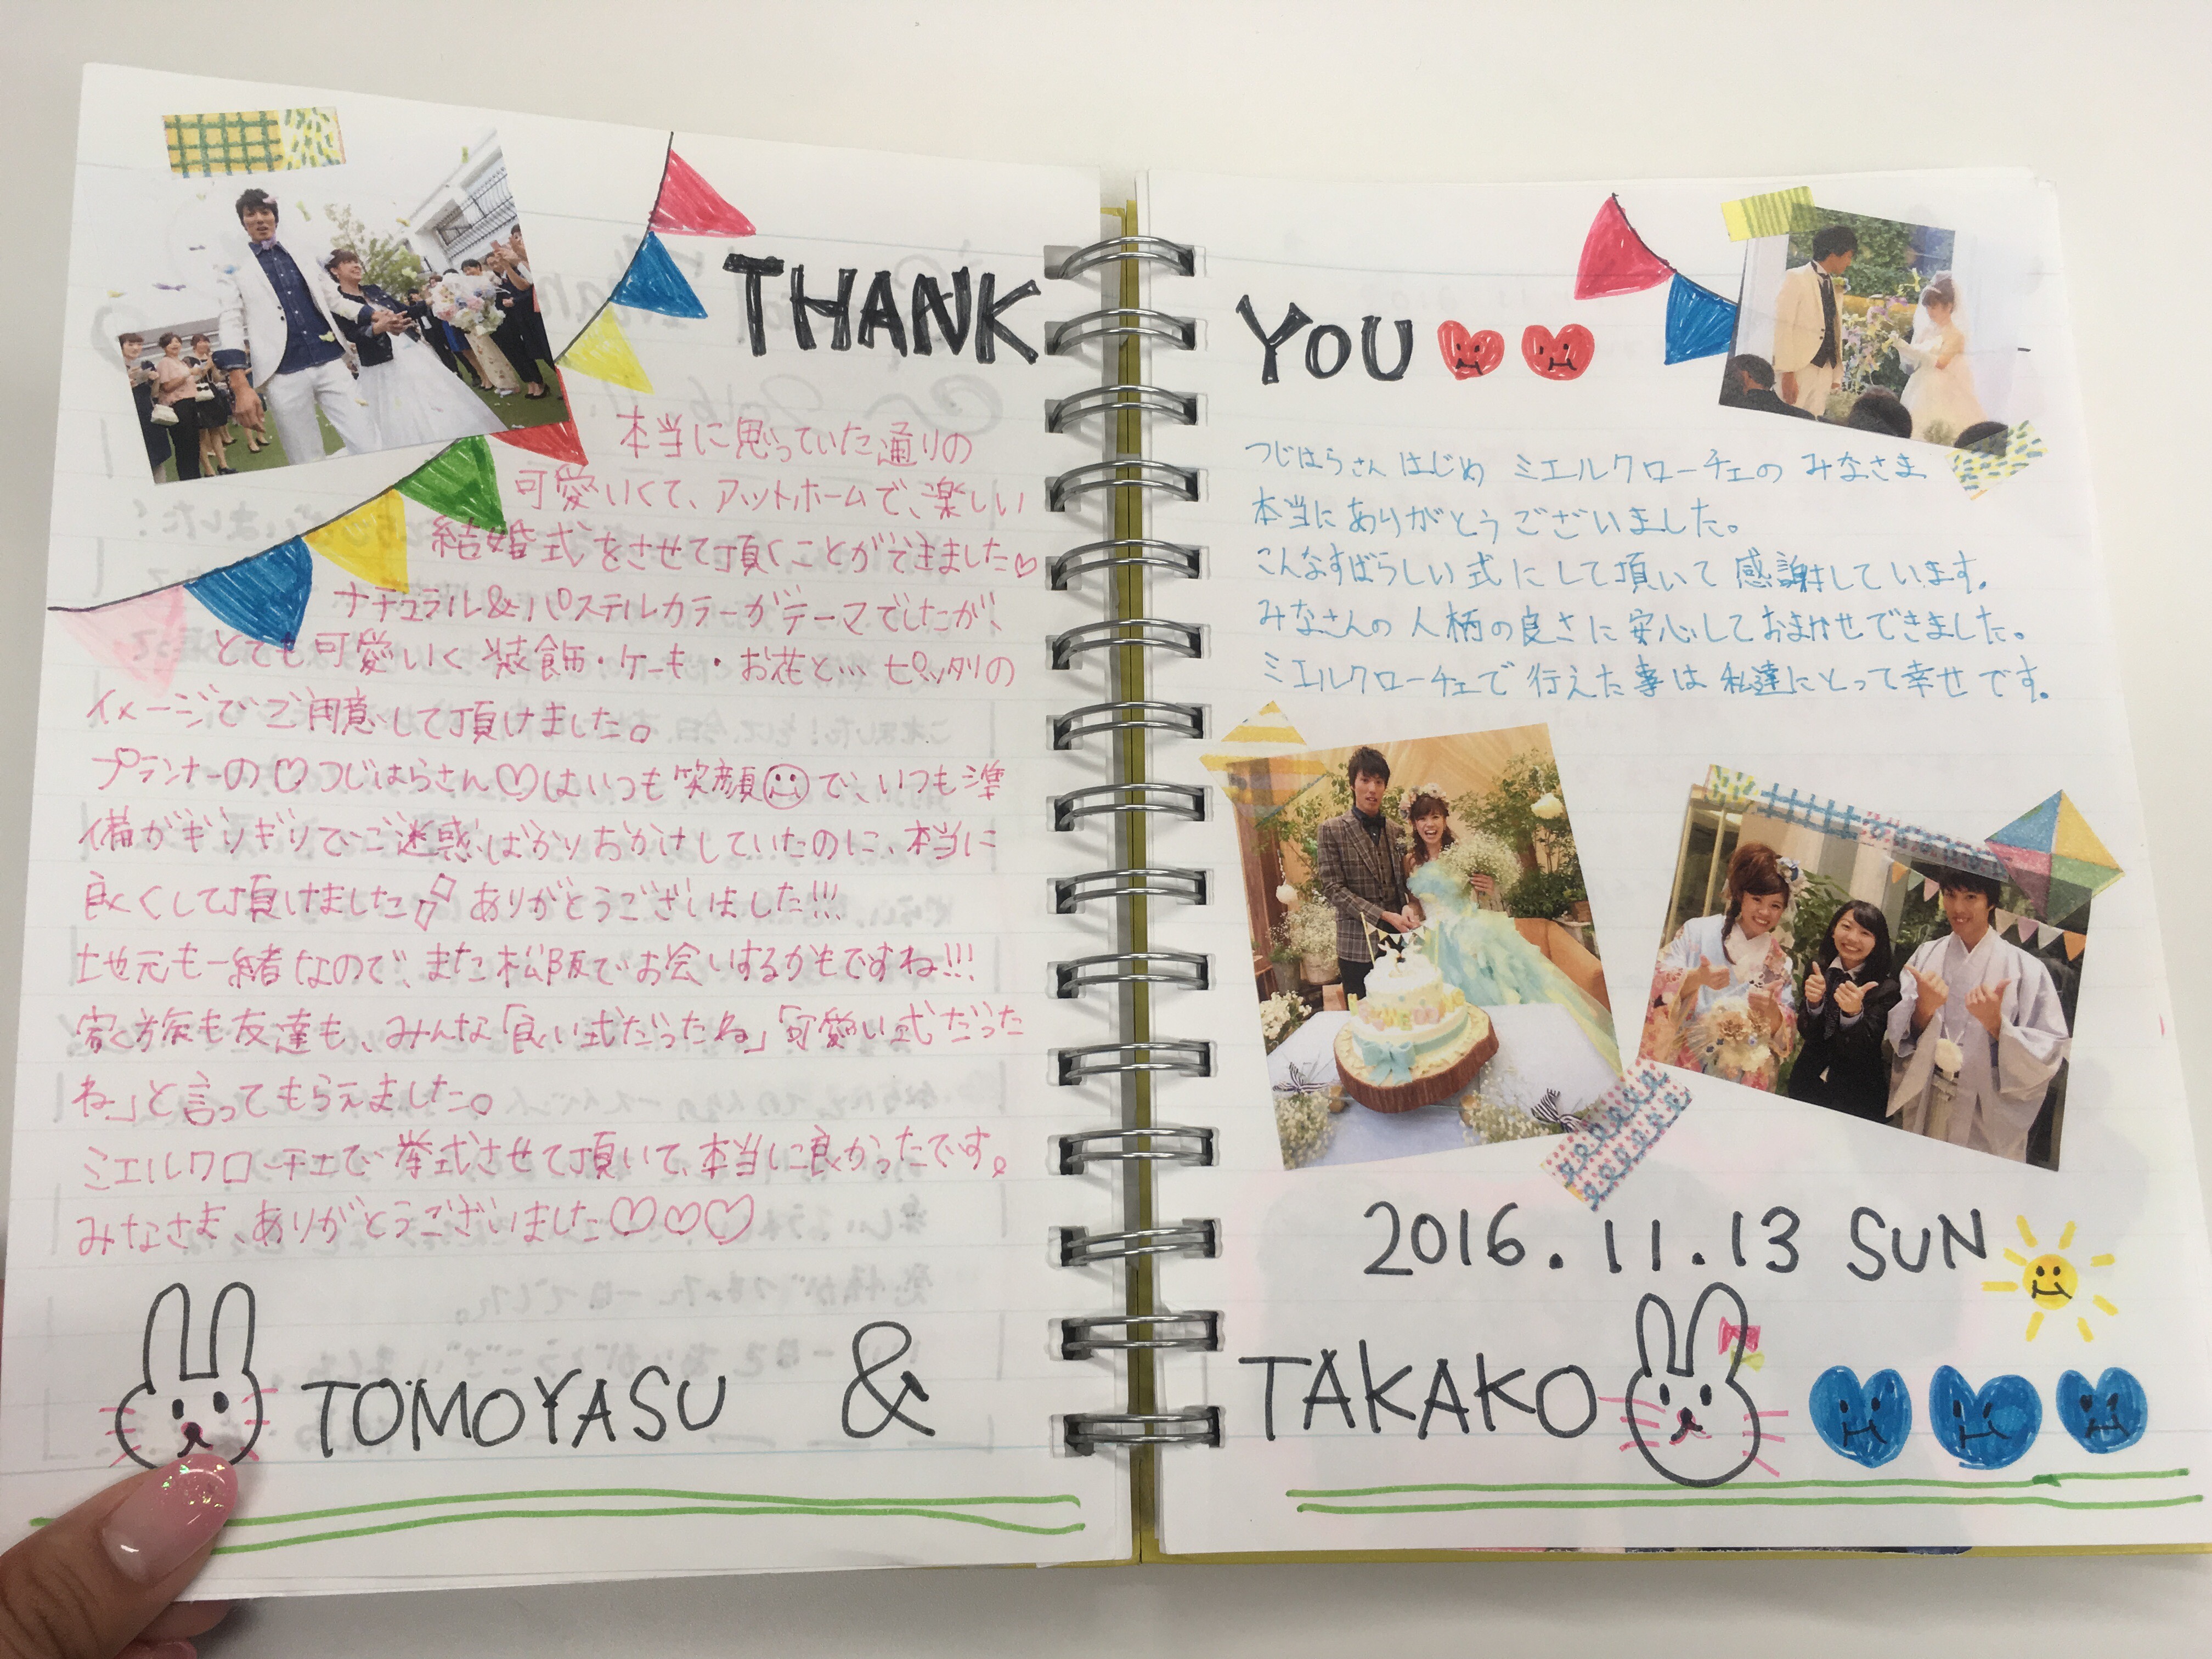 THANK
本当に思っていた通りの
可愛いくて、アットホームで、楽しい
結婚式をさせて頂くことができました♡
ナチュラル&パステルカラーがテーマでしたが、
とても可愛いく装飾・ケーキ・お花と… ピッタリの
イメージでご用意して頂けました。
プランナーの♡つじはらさん♡はいつも笑顔☺で、いつも準
備がギリギリでご迷惑ばかりおかけしていたのに、本当に
良くして頂けました ありがとうございました!!!
地元も一緒なので、また松阪でお会いするかもですね!!!
家族も友達も、みんな「良い式だったね」「可愛い式だった
ね」と言ってもらえました。
ミエルクローチェで挙式させて頂いて、本当に良かったです。
みなさま、ありがとうございました♡♡♡
TOMOYASU &
YOU
つじはらさんはじめ ミエルクローチェの みなさま
本当にありがとうございました。
こんなすばらしい式にして頂いて感謝しています。
みなさんの人柄の良さに安心しておまかせできました。
ミエルクローチェで行えた事は私達にとって幸せです。
2016.11.13 SUN
TAKAKO